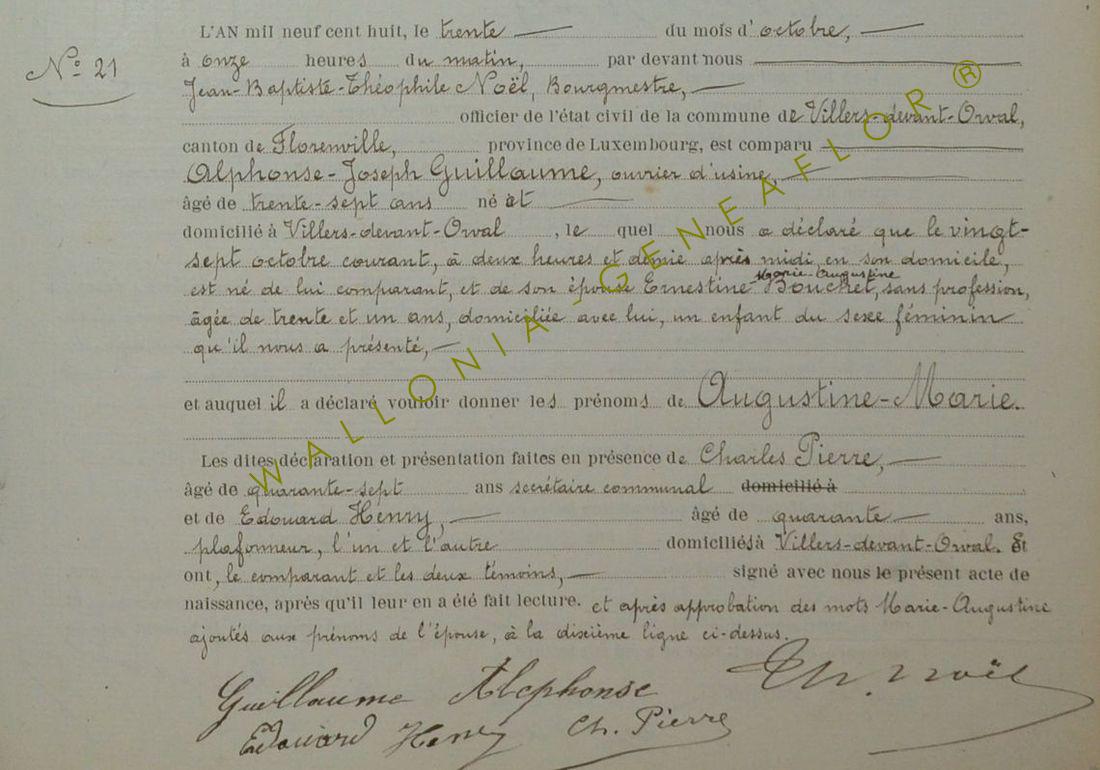 Nº 21
L'AN mil neuf cent huit, le trente du mois d'octobre,
à onze heures du matin, par devant nous
Jean-Baptiste-Théophile Noël, Bourgmestre,
officier de l'état civil de la commune de Villers-devant-Orval,
canton de Florenville, province de Luxembourg, est comparu
Alphonse-Joseph Guillaume, ouvrier d'usine,
âgé de trente-sept ans né et
domicilié à Villers-devant-Orval, lequel nous a déclaré que le vingt-
sept octobre courant, à deux heures et demie après midi, en son domicile,
Marie-Augustine
est né de lui comparant, et de son épouse Ernestine Bouchet, sans profession,
âgée de trente et un ans, domiciliée avec lui, un enfant du sexe féminin
qu'il nous a présenté,
et auquel il a déclaré vouloir donner les prénoms de Augustine-Marie.
Les dites déclaration et présentation faites en présence de Charles Pierre,
âgé de quarante-sept ans secrétaire communal domicilié à
et de Edouard Henry, âgé de quarante ans,
plafonneur, l'un et l'autre domiciliés à Villers-devant-Orval. Et
ont, le comparant et les deux témoins, signé avec nous le présent acte de
naissance, après qu'il leur en a été fait lecture. et après approbation des mots Marie-Augustine
ajoutés aux prénoms de l'épouse, à la dixième ligne ci-dessus.
Guillaume Alephonse Th. Noël
Edouard Henry Ch. Pierre
WALLONIA-GENEAFLOR ®